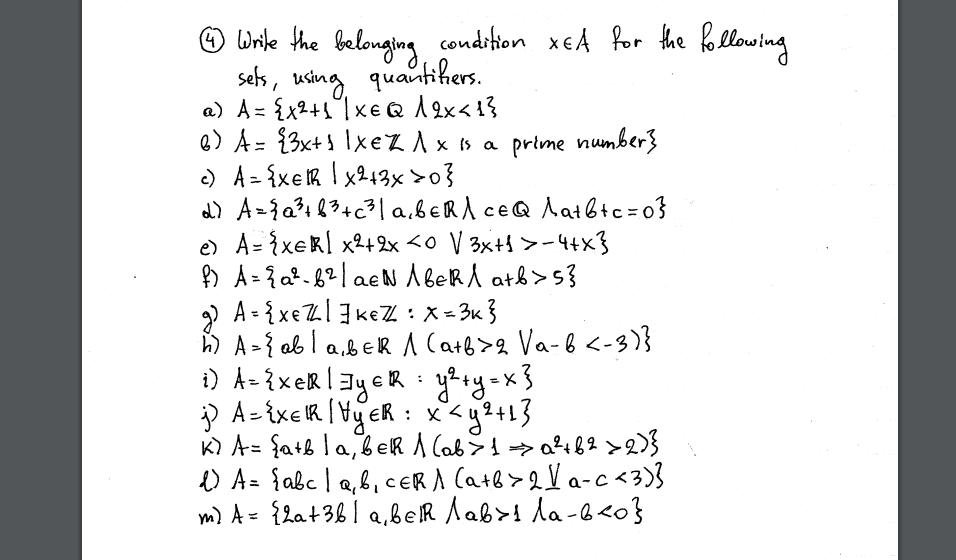 ④ Write the belonging condition x∈A for the following
sets, using quantifiers.
a) A = {x²+1 | x∈ℚ ∧ 2x<1}
b) A = {3x+1 | x∈ℤ ∧ x is a prime number}
c) A = {x∈ℝ | x²+3x >0}
d) A = {a³+b³+c³ | a,b∈ℝ ∧ c∈ℚ ∧ a+b+c=0}
e) A = {x∈ℝ | x²+2x <0 ∨ 3x+1 >-4+x}
f) A = {a²-b² | a∈ℕ ∧ b∈ℝ ∧ a+b>5}
g) A = {x∈ℤ | ∃k∈ℤ : x=3k}
h) A = {ab | a,b∈ℝ ∧ (a+b>2 ∨ a-b <-3)}
i) A = {x∈ℝ | ∃y∈ℝ : y²+y=x}
j) A = {x∈ℝ | ∀y∈ℝ : x<y²+1}
k) A = {a+b | a,b∈ℝ ∧ (ab>1 ⇒ a²+b²>2)}
l) A = {abc | a,b,c∈ℝ ∧ (a+b>2 ⊻ a-c<3)}
m) A = {2a+3b | a,b∈ℝ ∧ ab>1 ∧ a-b<0}